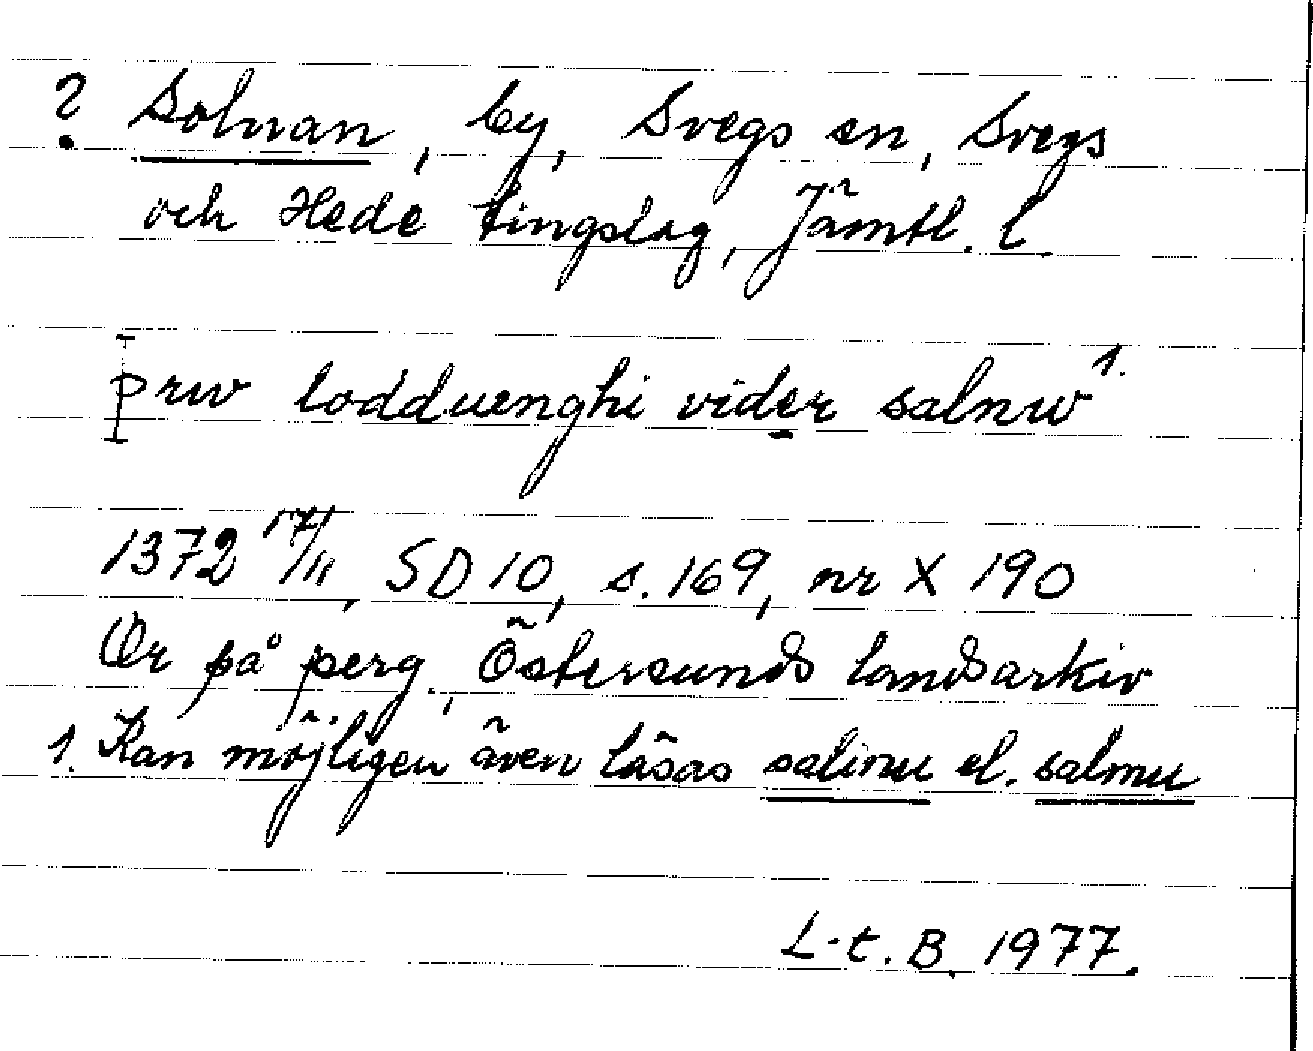 ? Solnan, by, Svegs sn, Svegs
och Hede tingslag, Jämtl. l.
I prw lodduenghi vider salnw 1.
1372 17/11, SD 10, s. 169, nr X 190
Or på perg., Östersunds landsarkiv
1. Kan möjligen även läsas salinu el. salmu
L-t. B. 1977.